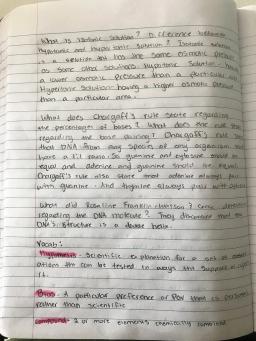 What is isotonic solution? Difference between
hypotonic and hypertonic solution? Isotonic solution
is a solution that has the same osmotic pressure
as some other solutions. Hypotonic Solution - having
a lower osmotic pressure than a particular
Hypertonic Solution: having a higher osmotic pressure
than a particular area.
What does Chargaff's rule state regarding
the percentages of bases? What does the rule state
regarding the base pairing? Chargaff's rule
that DNA from any species of any organism
have a 1:1 ratio. So guanine and cytosine should be
equal and adenine and guanine should be equal.
Chargaff's rule also state that adenine always pair
with guanine. And thymine always pair with
What did Rosaline Franklin
regarding the DNA molecule? They discovered that the
DNA's structure is a double helix.
Vocab:
Hypothesis - Scientific explanation for a set of
ations that can be tested in ways that support or
it.
Bias - A particular preference or POV that is personal
rather than scientific
Compound - 2 or more elements chemically combined